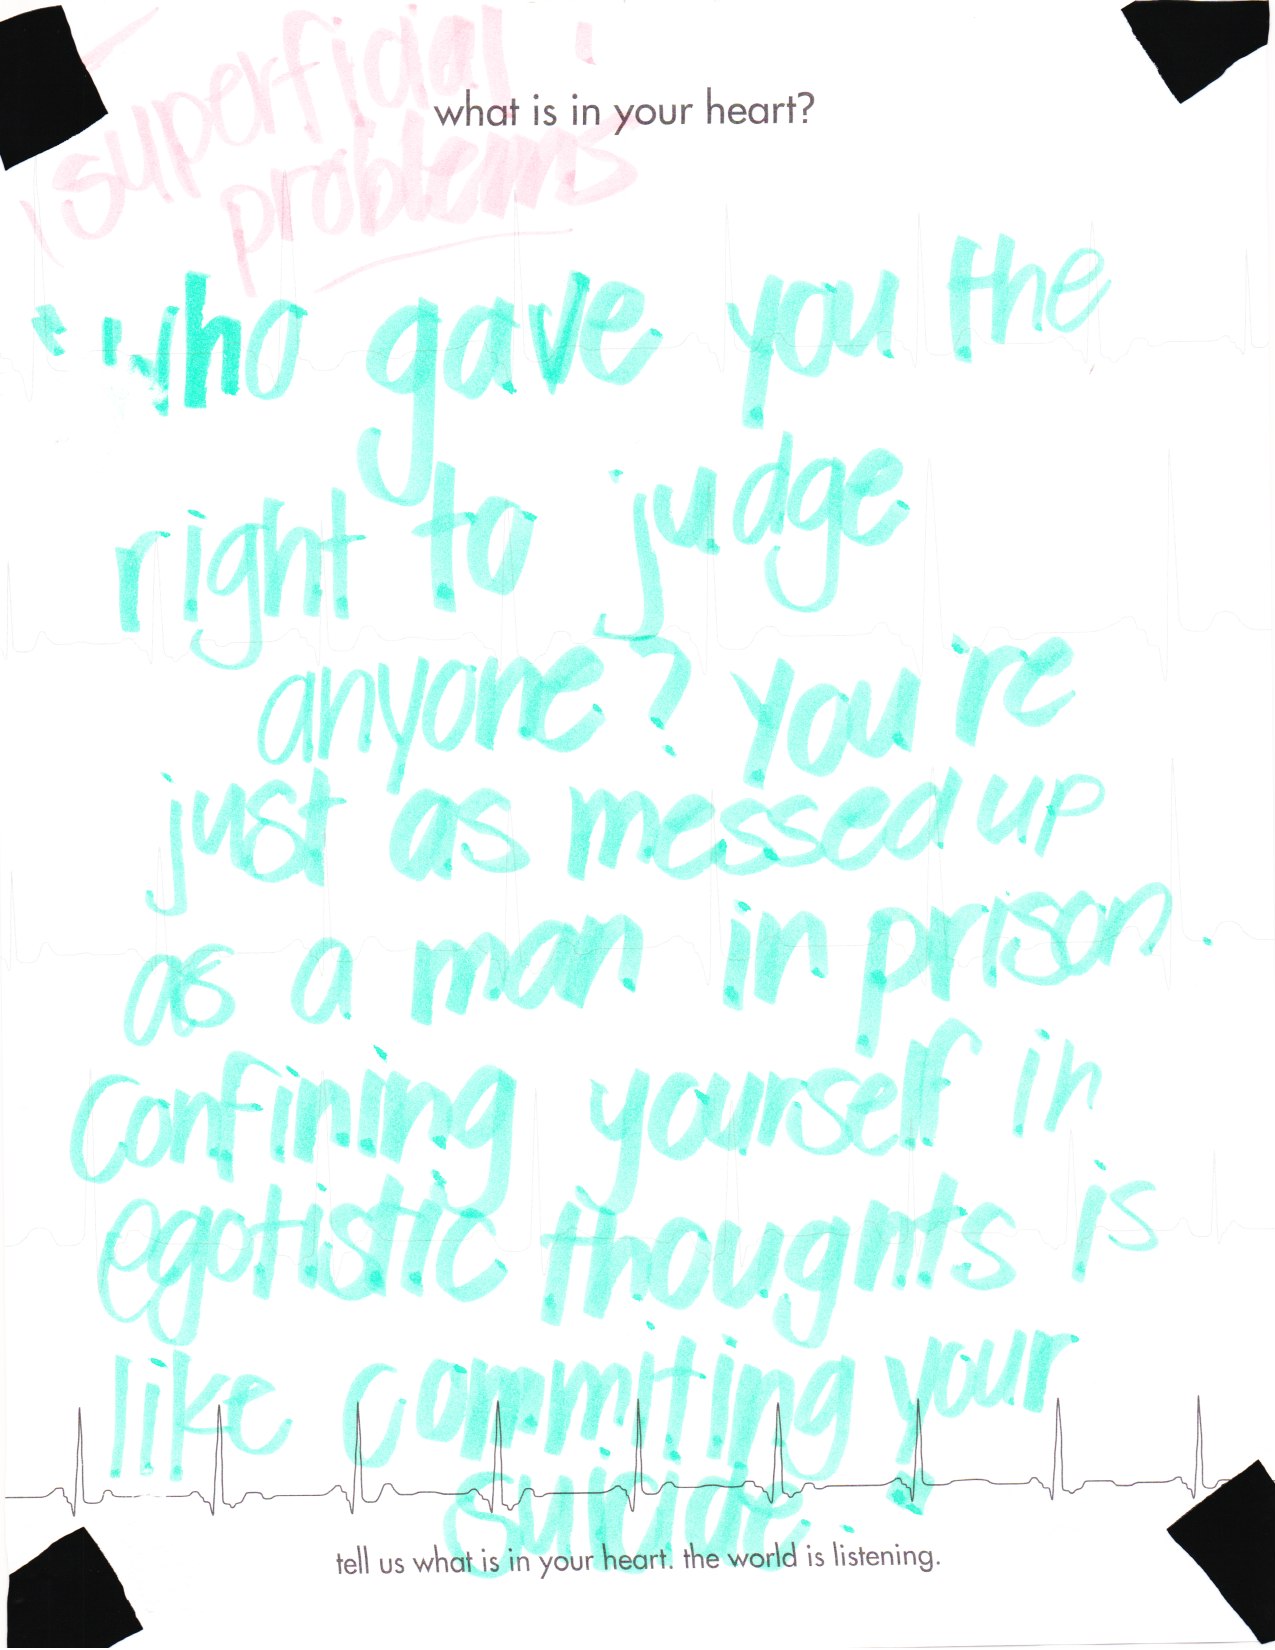 superficial
problems
what is in your heart?
who gave you the
right to judge
anyone? you're
just as messed up
as a man in prison.
Confining yourself in
egotistic thoughts is
like commiting your
suicide.
tell us what is in your heart. the world is listening.